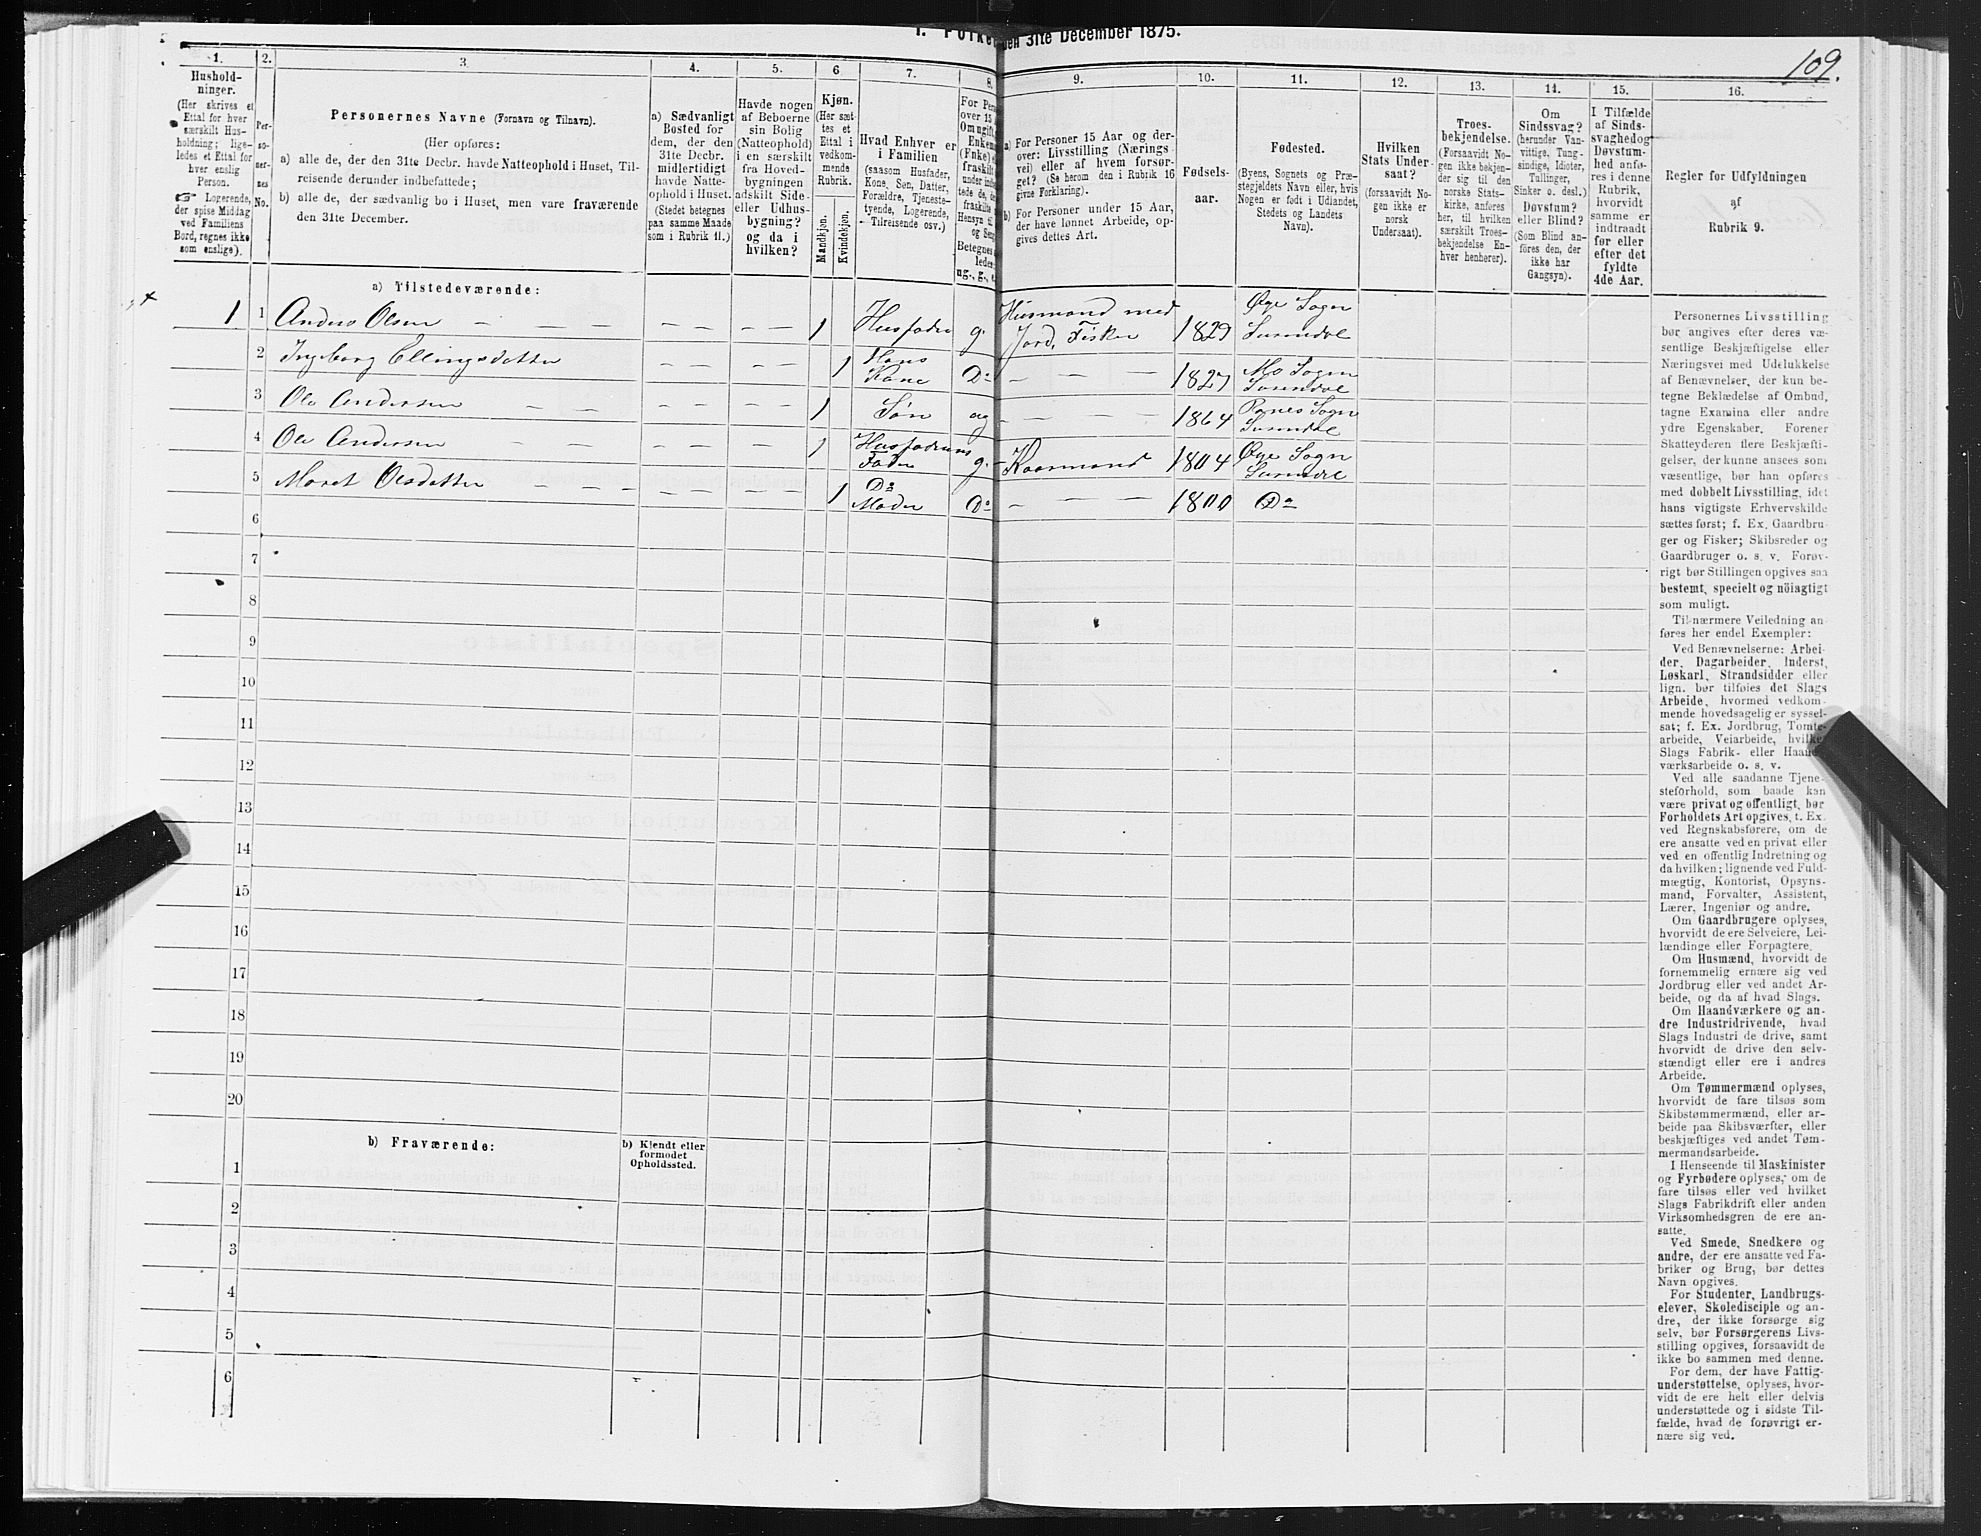 1. Folke
den 31te December 1875.
109.
1.
Hushold-
ninger.
(Her skrives et
Ettal for hver
særskilt Hus-
holdning; lige-
ledes et Ettal for
hver enslig
Person.
☞ Logerende,
der spise Middag
ved Familiens
Bord, regnes ikke
som enslige).
2.
Per-
so-
ner-
nes
No.
3.
Personernes Navne (Fornavn og Tilnavn).
(Her opføres:
a) alle de, der den 31te Decbr. havde Natteophold i Huset, Til-
reisende derunder indbefattede;
b) alle de, der sædvanlig bo i Huset, men vare fraværende
den 31te December.
4.
a) Sædvanligt
Bosted for
dem, der den
31te Decbr.
midlertidigt
havde Natte-
ophold i Huset.
(Stedet betegnes
paa samme Maade
som i Rubrik 11.)
5.
Havde nogen
af Beboerne
sin Bolig
(Natteophold)
i en særskilt
fra Hoved-
bygningen
adskilt Side-
eller Udhus-
bygning?
og da i
hvilken?
6.
Kjøn.
(Her sæt-
tes et
Ettal i
vedkom-
mende
Rubrik.
Mandkjøn.
Kvindekjøn.
7.
Hvad Enhver er
i Familien
(saasom Husfader,
Kone, Søn, Datter,
Forældre, Tjeneste-
tyende, Logerende,
Tilreisende osv.)
8.
For Pers
over 15
Om ugift,
Enke
(Fnke)
fraskilt
under inds
tede de,
fraskilte
Hensyn til
og Seng
Betegnes
leder
ug., g., e
9.
a) For Personer 15 Aar og der-
over: Livsstilling (Nærings-
vei) eller af hvem forsør-
get? (Se herom den i Rubrik 16
givne Forklaring).
b) For Personer under 15 Aar,
der have lønnet Arbeide, op-
gives dettes Art.
10.
Fødsels-
aar.
11.
Fødested.
(Byens, Sognets og Præ-
stegjeldets Navn eller, hvis
Nogen er født i Udlandet,
Stedets og Landets
Navn).
12.
Hvilken
Stats Under-
saat?
(forsaavidt No-
gen ikke er
norsk
Undersaat).
13.
Troes-
bekjendelse.
(Forsaavidt No-
gen ikke bekjen-
der sig til den
norske Stats-
kirke, anføres
her, til hvilken
særskilt Troes-
bekjendelse En-
hver henhører).
14.
Om
Sindssvag?
(herunder Van-
vittige, Tung-
sindige, Idioter,
Tullinger,
Sinker o. desl.)
Døvstum?
eller Blind?
(Som Blind an-
føres den, der
ikke har
Gangsyn).
15.
I Tilfælde
af Sinds-
svaghed og
Døvstum-
hed anfø-
res i denne
Rubrik,
hvorvidt
samme er
indtraadt
før eller
efter det
fyldte
4de Aar.
16.
Regler for Udfyldningen
af
Rubrik 9.
a) Tilstedeværende:
1 1 Anders Olsen — — — — — — — — 1 Husfader g. Husmand med Jord, Fisker 1829 Øye Sogn Surendal
2 Ingeborg Ellingsdatter — — — — 1 Hans Kone Do — — — 1827 Mo Sogn Surendal
3 Ole Andersen — — — — — — — 1 Søn ug — — — 1864 Ranes Sogn Surendal
4 Ole Andersen — — — — — — — 1 Husfaderens Fader g. Kaarmand 1804 Øye Sogn Surendal
5 Maret Olsdatter — — — — — — — 1 Do Moder Do — — — 1800 Do
6
7
8
9
10
11
12
13
14
15
16
17
18
19
20
b) Fraværende:
b) Kjendt eller
formodet
Opholdssted.
1
2
3
4
5
6
Personernes Livsstilling
bør angives efter deres væ-
sentlige Beskjæftigelse eller
Næringsvei med Udelukkelse
af Benævnelser, der kun be-
tegne Beklædelse af Ombud,
tagne Examina eller andre
ydre Egenskaber. Forener
Skatteyderen flere Beskjæfti-
gelser, der kunne ansees som
væsentlige, bør han opføres
med dobbelt Livsstilling, idet
hans vigtigste Erhvervskilde
sættes først; f. Ex. Gaardbru-
ger og Fisker; Skibsreder og
Gaardbruger o. s. v. Forøv-
rigt bør Stillingen opgives saa
bestemt, specielt og nöiagtigt
som muligt.
Til nærmere Veiledning an-
føres her endel Exempler:
Ved Benævnelserne: Arbei-
der, Dagarbeider, Inderst,
Løskarl, Strandsidder eller
lign. bør tilføies det Slags
Arbeide, hvormed vedkom-
mende hovedsagelig er syssel-
sat; f. Ex. Jordbrug, Tomte-
arbeide, Veiarbeide, hvilket
Slags Fabrik- eller Haand-
værksarbeide o. s. v.
Ved alle saadanne Tjene-
steforhold, som baade kan
være privat og offentligt, bør
Forholdets Art opgives, t. Ex.
ved Regnskabsførere, om de
ere ansatte ved en privat eller
ved en offentlig Indretning og
da hvilken; lignende ved Fuld-
mægtig, Kontorist, Opsyns-
mand, Forvalter, Assistent,
Lærer, Ingeniør og andre.
Om Gaardbrugere oplyses,
hvorvidt de ere Selveiere, Lei-
lændinge eller Forpagtere.
Om Husmænd, hvorvidt de
fornemmelig ernære sig ved
Jordbrug eller ved andet Ar-
beide, og da af hvad Slags.
Om Haandværkere og an-
dre Industridrivende, hvad
Slags Industri de drive, samt
hvorvidt de drive den selv-
stændigt eller ere i andres
Arbeide.
Om Tømmermænd oplyses,
hvorvidt de fare tilsøs som
Skibstømmermænd, eller ar-
beide paa Skibsværfter, eller
beskjæftiges ved andet Tøm-
mermandsarbeide.
I Henseende til Maskinister
og Fyrbødere oplyses, om de
fare tilsøs eller ved hvilket
Slags Fabrikdrift eller anden
Virksomhedsgren de ere an-
satte.
Ved Smede, Snedkere og
andre, der ere ansatte ved Fa-
briker og Brug, bør dettes
Navn opgives.
For Studenter, Landbrugs-
elever, Skoledisciple og an-
dre, der ikke forsørge sig
selv, bør Forsørgerens Livs-
stilling opgives, forsaavidt de
ikke bo sammen med denne.
For dem, der have Fattig-
understøttelse, oplyses, hvor-
vidt de ere helt eller delvis
understøttede og i sidste Til-
fælde, hvad de forøvrigt er-
nære sig ved.